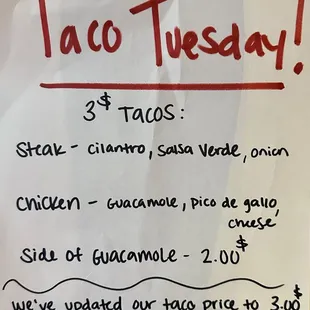 Taco Tuesday!
3$ TACOS:
Steak - cilantro, salsa verde, onion
Chicken - Guacamole, pico de gallo,
cheese
Side of Guacamole - 2.00$
we've updated our taco price to 3.00$